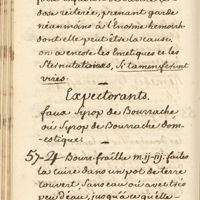 don reiterée, prenant garde
neanmoins à l'Enorme hemorrh.
dont elle peut être la cause,
on a encore les Emetiques et les
Sternutatoires, Si tamen ferunt
vires.
Expectorants.
faux Syrop de Bourrache,
ou Syrop de Bourrache dom-
estique:
57-24 Bour. fraîche m.ij-iij. faites
la cuire dans un pot de terre
couvert, sans eau ou avec très
peu d'eau, jusqu'à ce qu'elle